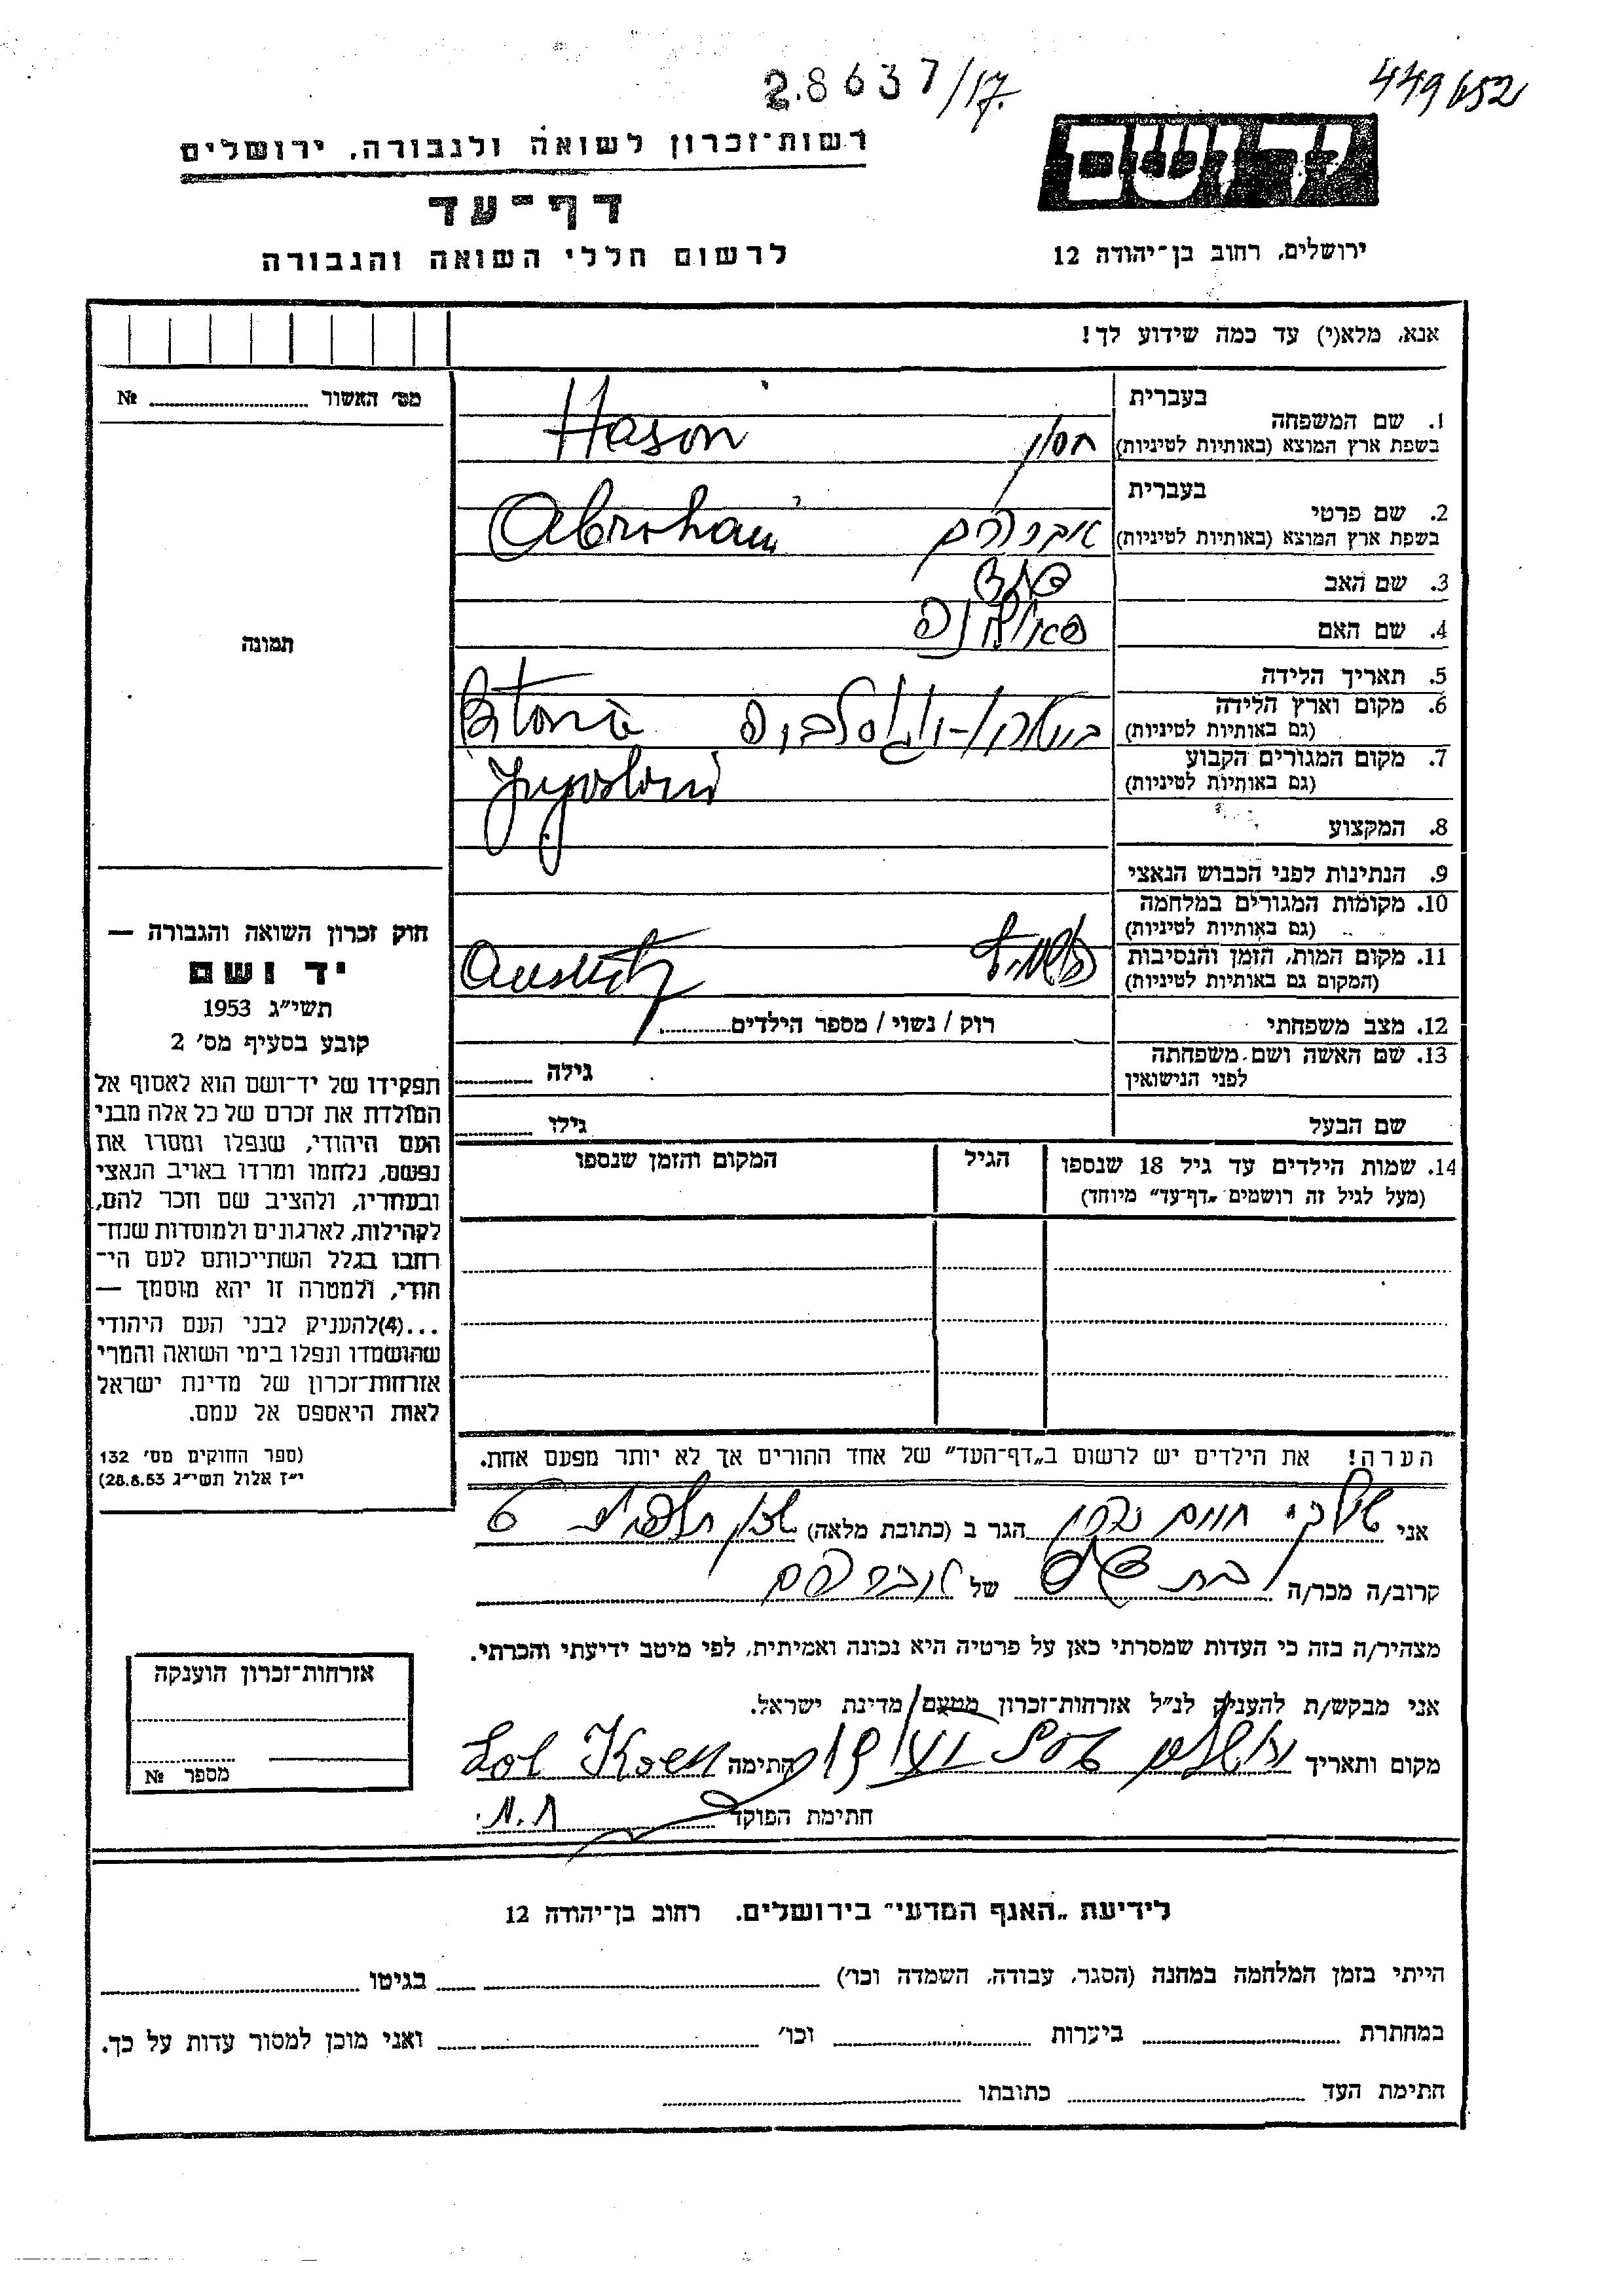 28637/17
449652
רשות־זכרון לשואה ולגבורה, ירושלים
יד ושם
דף־עד
לרשום חללי השואה והגבורה
ירושלים, רחוב בן־יהודה 12
אנא, מלא(י) עד כמה שידוע לך!
מס׳ האשור № 
תמונה
1. שם המשפחה
בעברית
בשפת ארץ המוצא (באותיות לטיניות)
חסון Hason
2. שם פרטי
בעברית
בשפת ארץ המוצא (באותיות לטיניות)
אברהם Abraham
3. שם האב
4. שם האם
5. תאריך הלידה
6. מקום וארץ הלידה
(גם באותיות לטיניות)
7. מקום המגורים הקבוע
(גם באותיות לטיניות)
8. המקצוע
9. הנתינות לפני הכבוש הנאצי
10. מקומות המגורים במלחמה
(גם באותיות לטיניות)
11. מקום המות, הזמן והנסיבות
(המקום גם באותיות לטיניות)
12. מצב משפחתי
רוק / נשוי / מספר הילדים
13. שם האשה ושם משפחתה
לפני הנישואין
גילה
שם הבעל
גילו
14. שמות הילדים עד גיל 18 שנספו
(מעל לגיל זה רושמים „דף־עד״ מיוחד)
הגיל
המקום והזמן שנספו
חוק זכרון השואה והגבורה —
יד ושם
תשי״ג 1953
קובע בסעיף מס׳ 2
תפקידו של יד־ושם הוא לאסוף אל
המולדת את זכרם של כל אלה מבני
העם היהודי, שנפלו ומסרו את
נפשם, נלחמו ומרדו באויב הנאצי
ובעוזריו, ולהציב שם וזכר להם,
לקהילות, לארגונים ולמוסדות שנח־
רחבו בגלל השתייכותם לעם הי־
הודי, ולמטרה זו יהא מוסמך —
...(4)להעניק לבני העם היהודי
שהושמדו ונפלו בימי השואה והמרי
אזרחות־זכרון של מדינת ישראל
לאות היאספם אל עמם.
(ספר החוקים מס׳ 132
י״ז אלול תשי״ג 28.8.53)
הערה! את הילדים יש לרשום ב„דף־העד״ של אחד ההורים אך לא יותר מפעם אחת.
אני
הגר ב (כתובת מלאה)
קרוב/ה מכר/ה
של אברהם
מצהיר/ה בזה כי העדות שמסרתי כאן על פרטיה היא נכונה ואמיתית, לפי מיטב ידיעתי והכרתי.
אני מבקש/ת להעניק לנ״ל אזרחות־זכרון מטעם מדינת ישראל.
מקום ותאריך ירושלים
חתימה
חתימת הפוקד
אזרחות־זכרון הוענקה
מספר №
לידיעת „האגף המדעי״ בירושלים. רחוב בן־יהודה 12
הייתי בזמן המלחמה במחנה (הסגר, עבודה, השמדה וכו׳) בגיטו
במחתרת ביערות וכו׳ ואני מוכן למסור עדות על כך.
חתימת העד כתובתו